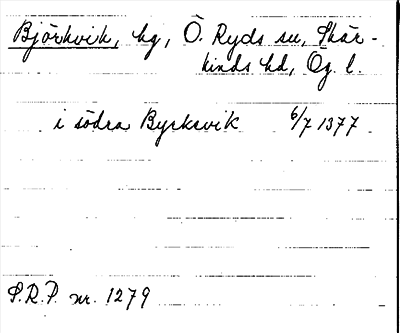 Björkvik, hg, Ö. Ryds sn, Skär-
kinds hd, Ög. l.
i södra Byrksvik 6/7 1377
S.R.P. nr. 1279